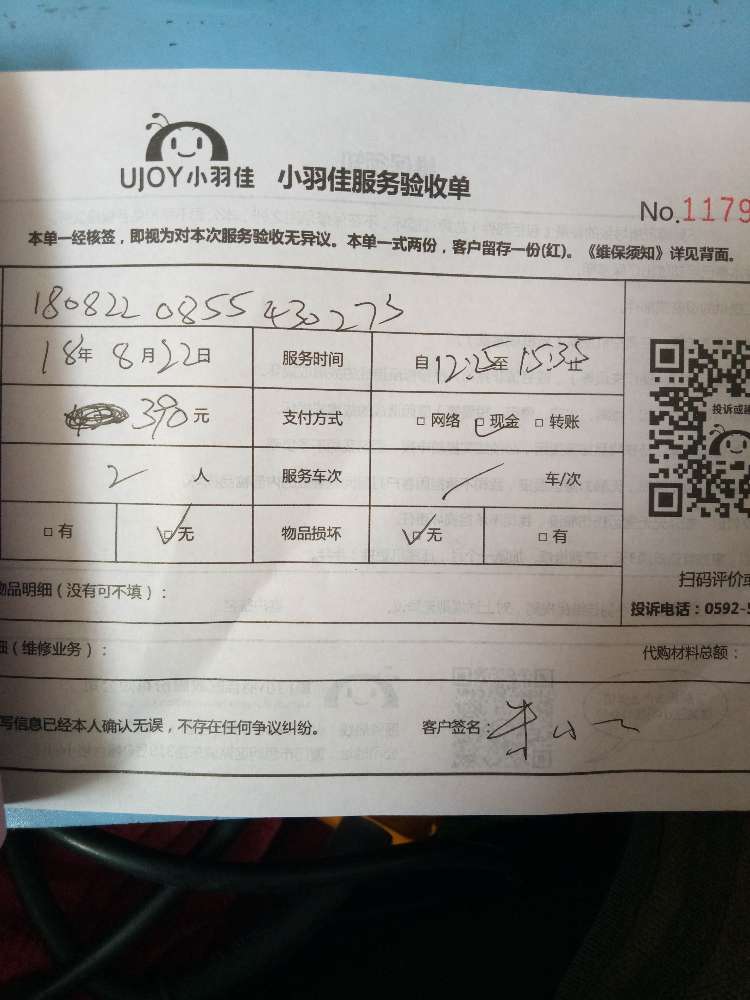 UJOY小羽佳 小羽佳服务验收单
No.1179
本单一经核签,即视为对本次服务验收无异议。本单一式两份,客户留存一份(红)。《维保须知》详见背面。
180822 0855 430273
18年 8月22日 服务时间 自12:25至15:35止
390元 支付方式 □网络 □现金 □转账
投诉或建
2 人 服务车次 车/次
□有 □无 物品损坏 □无 □有
扫码评价或
物品明细(没有可不填):
投诉电话:0592-5
细(维修业务): 代购材料总额:
写信息已经本人确认无误,不存在任何争议纠纷。 客户签名: